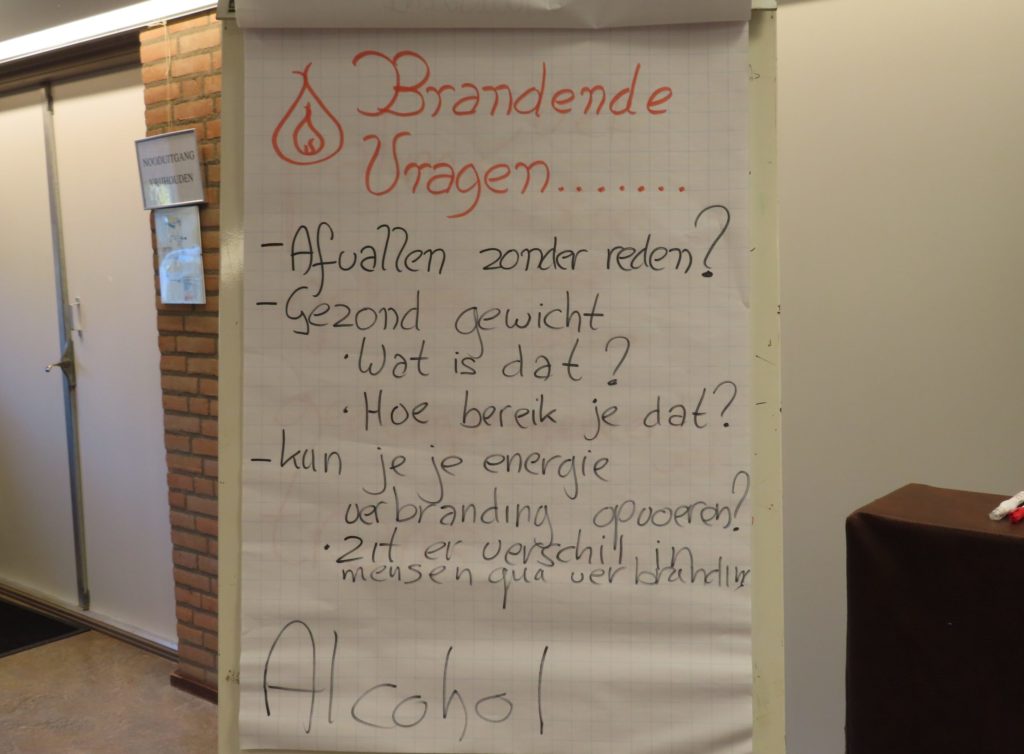 NOODUITGANG
VRIJHOUDEN
Brandende
Vragen.......
- Afvallen zonder reden?
- Gezond gewicht
• Wat is dat?
• Hoe bereik je dat?
- kun je je energie
verbranding opvoeren?
• Zit er verschil in
mensen qua verbranding
Alcohol